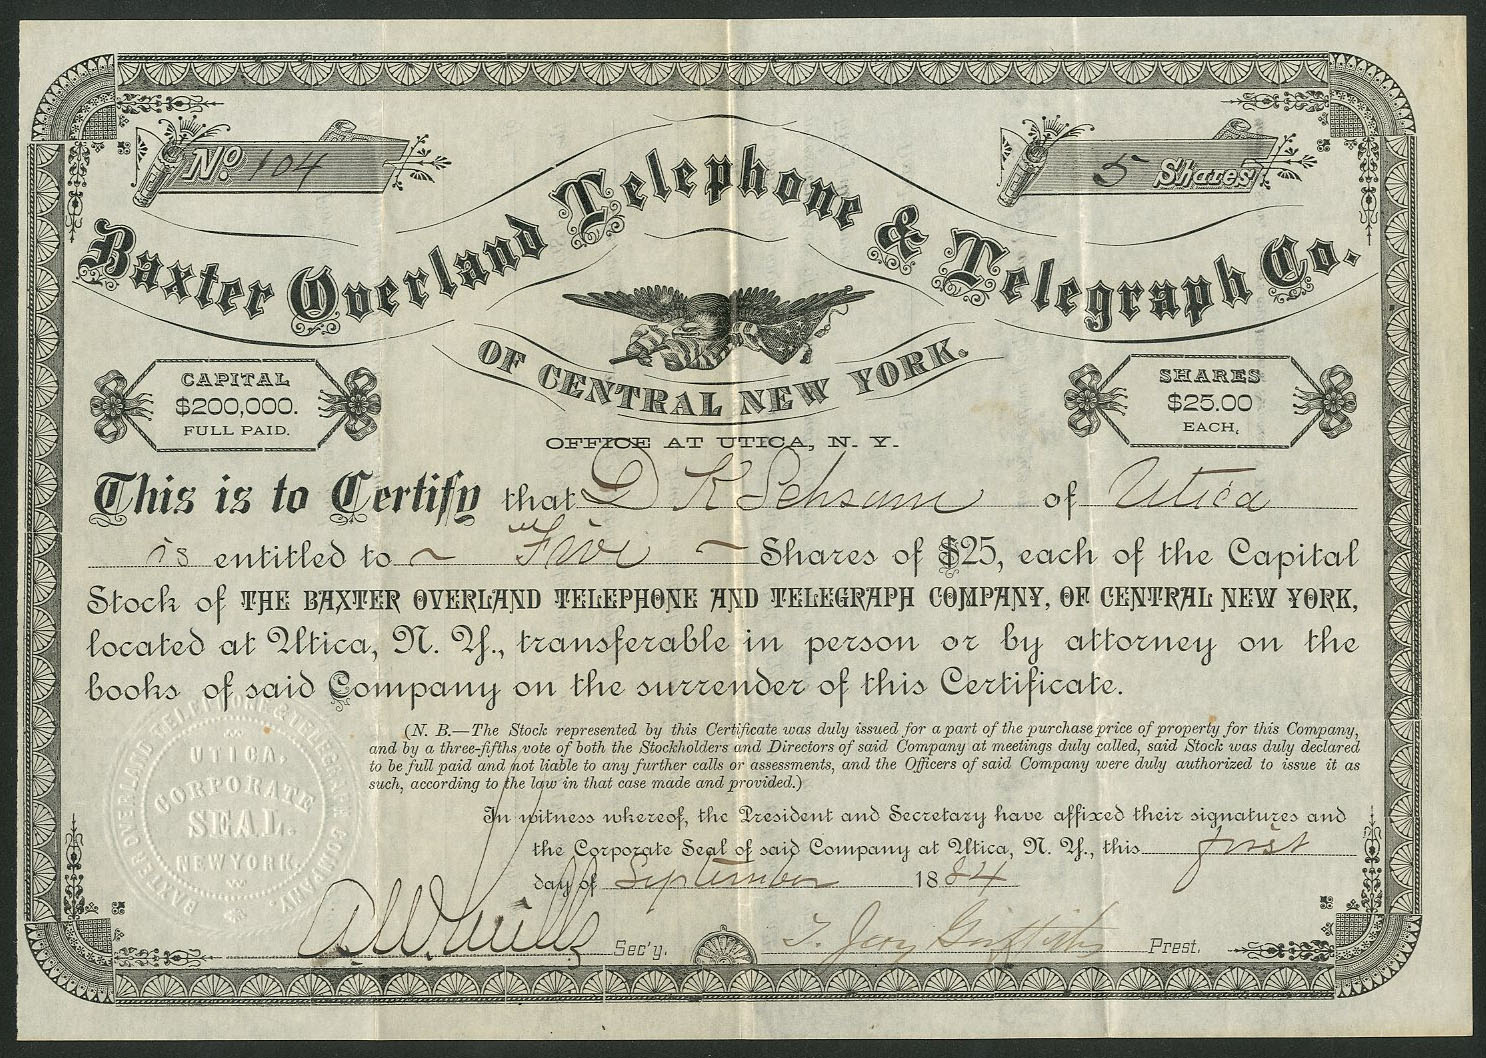 No. 104
5 Shares
Baxter Overland Telephone & Telegraph Co.
OF CENTRAL NEW YORK.
CAPITAL
$200,000.
FULL PAID.
SHARES
$25.00
EACH,
OFFICE AT UTICA, N. Y.
This is to Certify that D K Schram of Utica
is entitled to ~ Five ~ Shares of $25, each of the Capital
Stock of THE BAXTER OVERLAND TELEPHONE AND TELEGRAPH COMPANY, OF CENTRAL NEW YORK,
located at Utica, N. Y., transferable in person or by attorney on the
books of said Company on the surrender of this Certificate.
(N. B.—The Stock represented by this Certificate was duly issued for a part of the purchase price of property for this Company,
and by a three-fifths vote of both the Stockholders and Directors of said Company at meetings duly called, said Stock was duly declared
to be full paid and not liable to any further calls or assessments, and the Officers of said Company were duly authorized to issue it as
such, according to the law in that case made and provided.)
In witness whereof, the President and Secretary have affixed their signatures and
the Corporate Seal of said Company at Utica, N. Y., this first
day of September 1884
BAXTER OVERLAND TELEPHONE & TELEGRAPH COMPANY.
UTICA,
CORPORATE
SEAL.
NEW YORK.
Sec'y.
T. Jay Griffiths Prest.